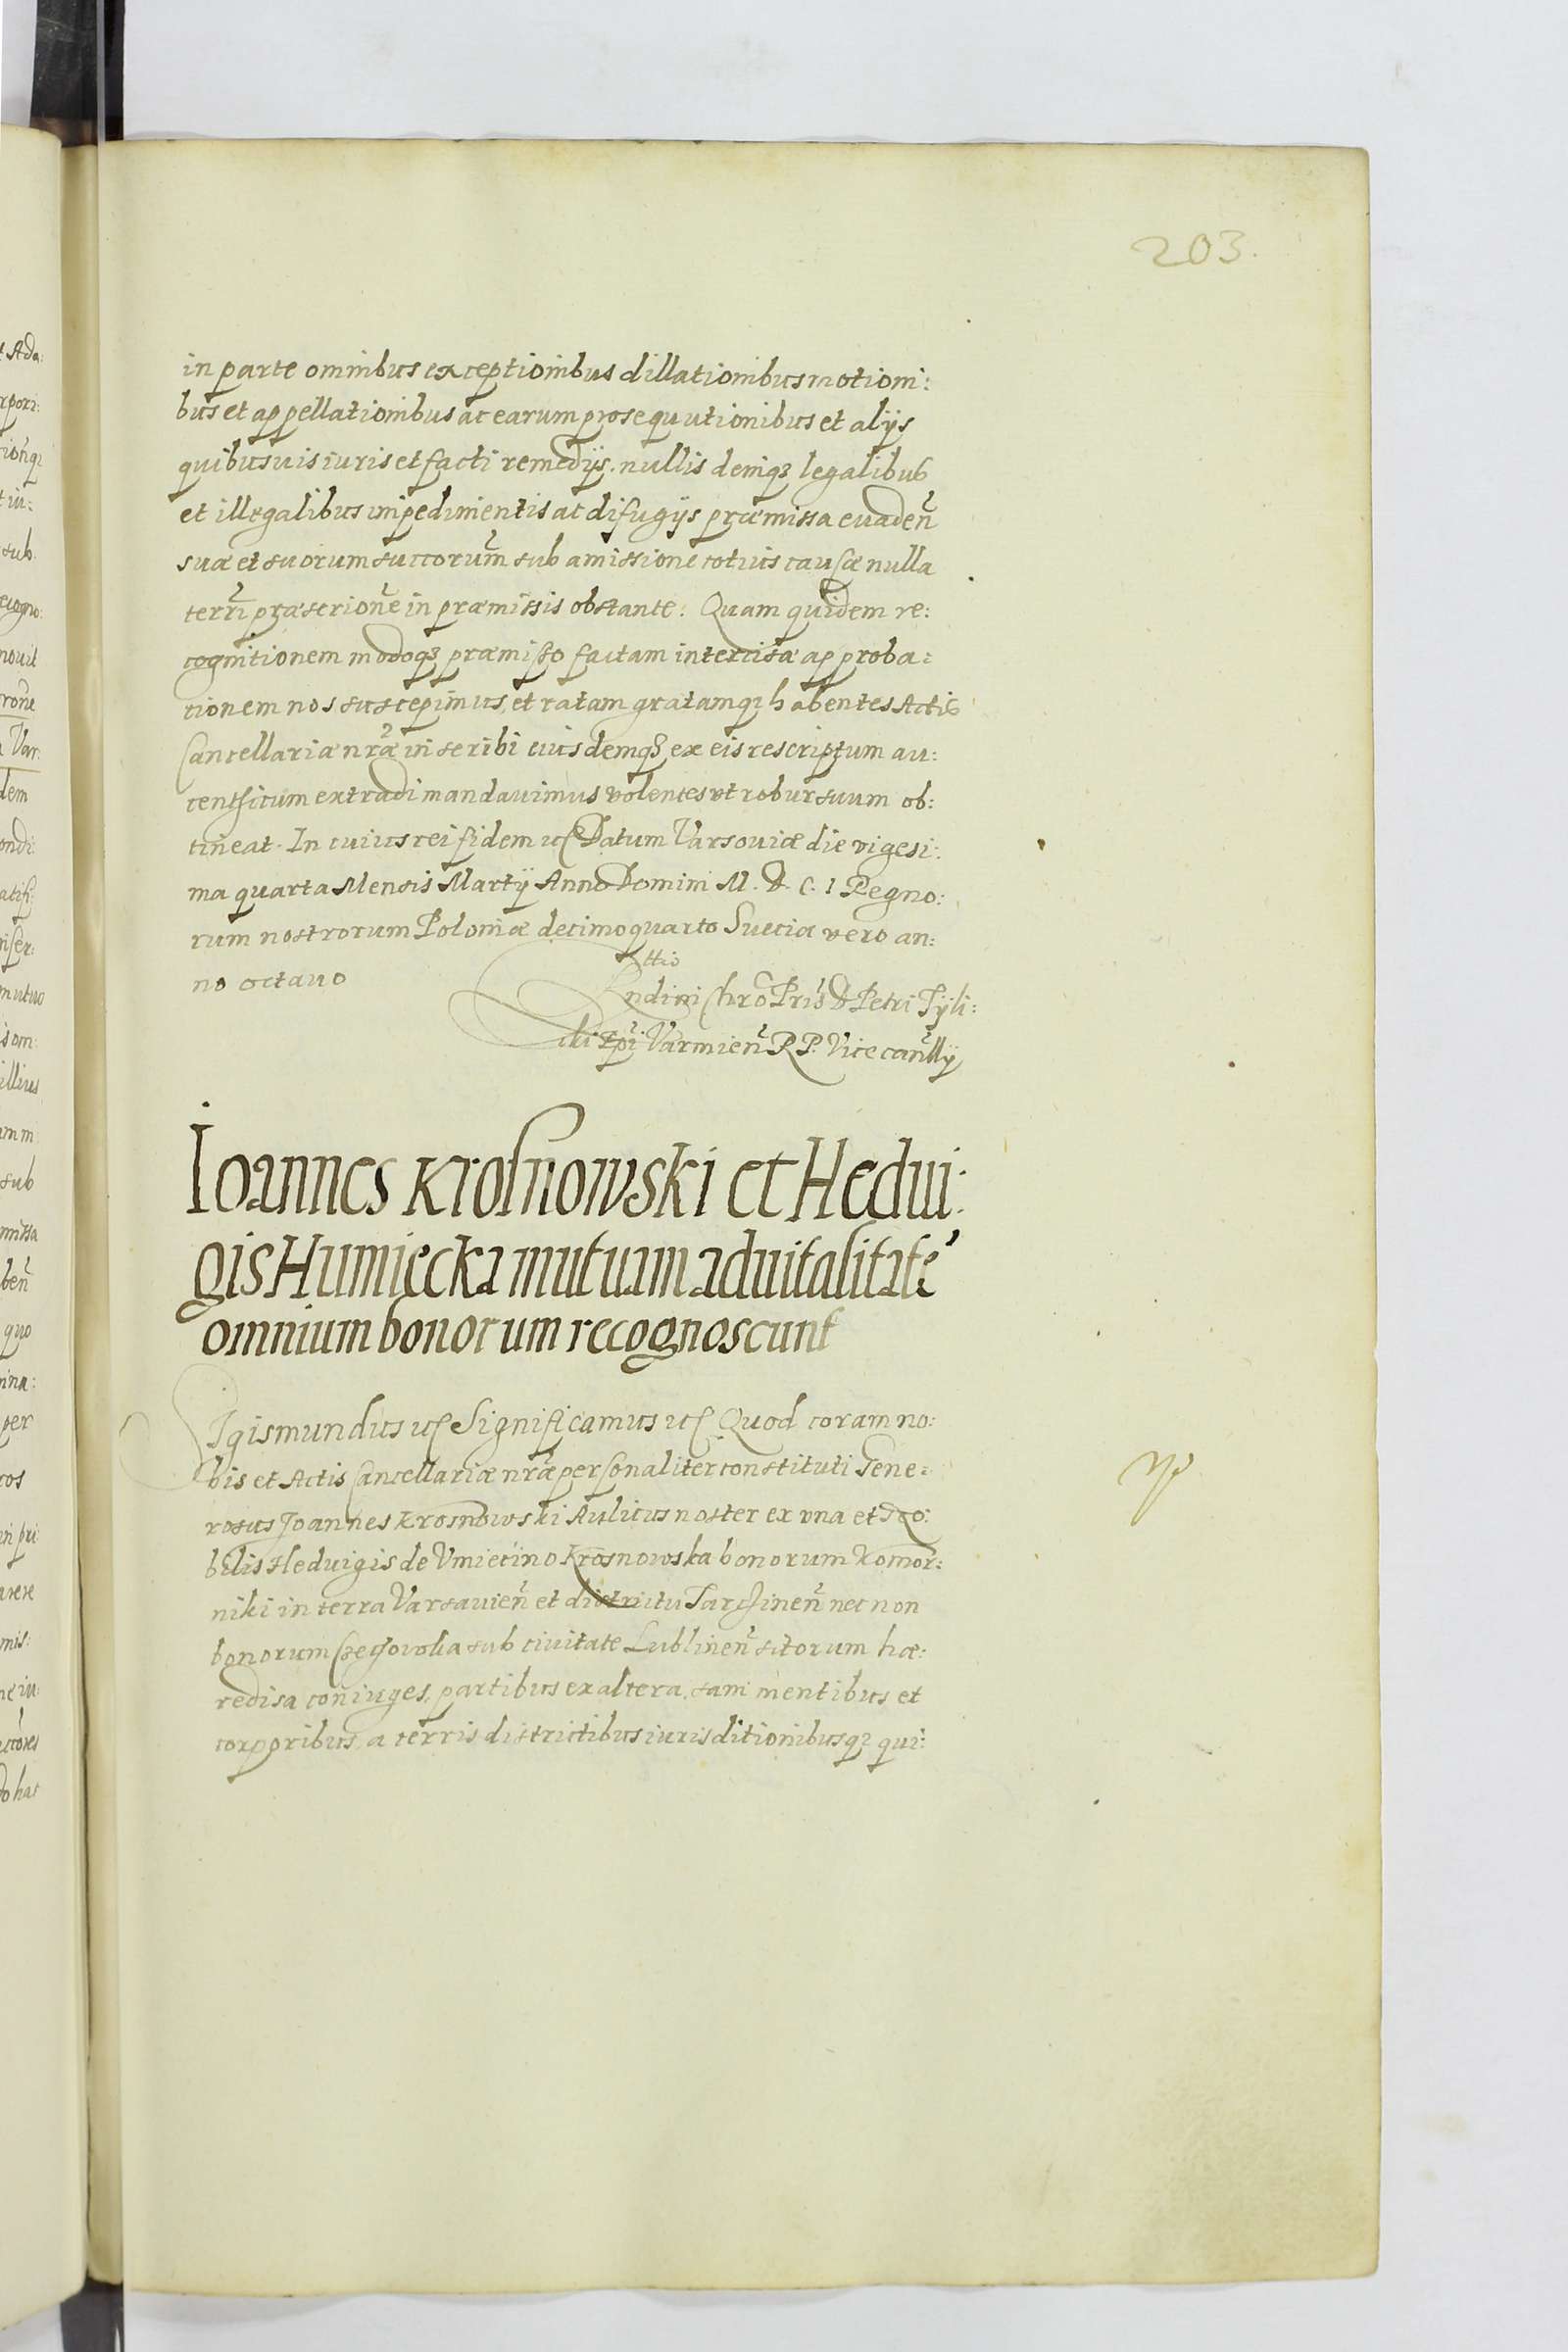 203.
in parte omnibus exceptionibus dillationibus motioni:
bus et appellationibus ac earum prosequutionibus et alijs
quibusuis iuris et facti remedijs. nullis deniq3 legalibus
et illegalibus impedimentis ac difugijs præmissa euadeñ
suæ et suorum succorum̃ sub amissione totius causæ nulla
terrĩ præscrionẽ in præmissis obstante: Quam quidem re:
cognitionem modoq3 præmisso factam intercisæ approba:
tionem nos suscepimus, et ratam gratamq3 habentes Actis
Cancellariæ nræ̃ inscribi eiusdemq3 ex eis rescriptum au:
tenthicum extradi mandauimus volentes vt robur suum ob:
tineat. In cuius rei fidem etc Datum Varsouiæ die vigesi:
ma quarta Mensis Martij Anno Domini M. D. C. I Regno:
rum nostrorum Poloniæ decimo quarto Sueciæ vero an:
no octauo
ttio
Rndi in Chrõ Pris D Petri Tyli:
cki Epĩ Varmieñ R P. Vicecanllij
Ioannes Krosnowski et Hedui:
gis Humiecka mutuam aduitalitatẽ
omnium bonorum recognoscunt
Sigismundus etc Significamus etc Quod coram no:
bis et Actis Cancellariæ nræ̃ personaliter constituti Gene:
rosus Joannes Krosnowski Aulicus noster ex vna et No:
bilis Heduigis de Vmiecino Krosnowska bonorum Komor:
niki in terra Varsauieñ et districtu Tarczineñ nec non
bonorum Czechowka sub ciuitate Lublineñ sitorum hæ:
redisa coniuges, partibus ex altera, sani mentibus et
corporibus, a terris districtibus iurisditionibusq3 qui: